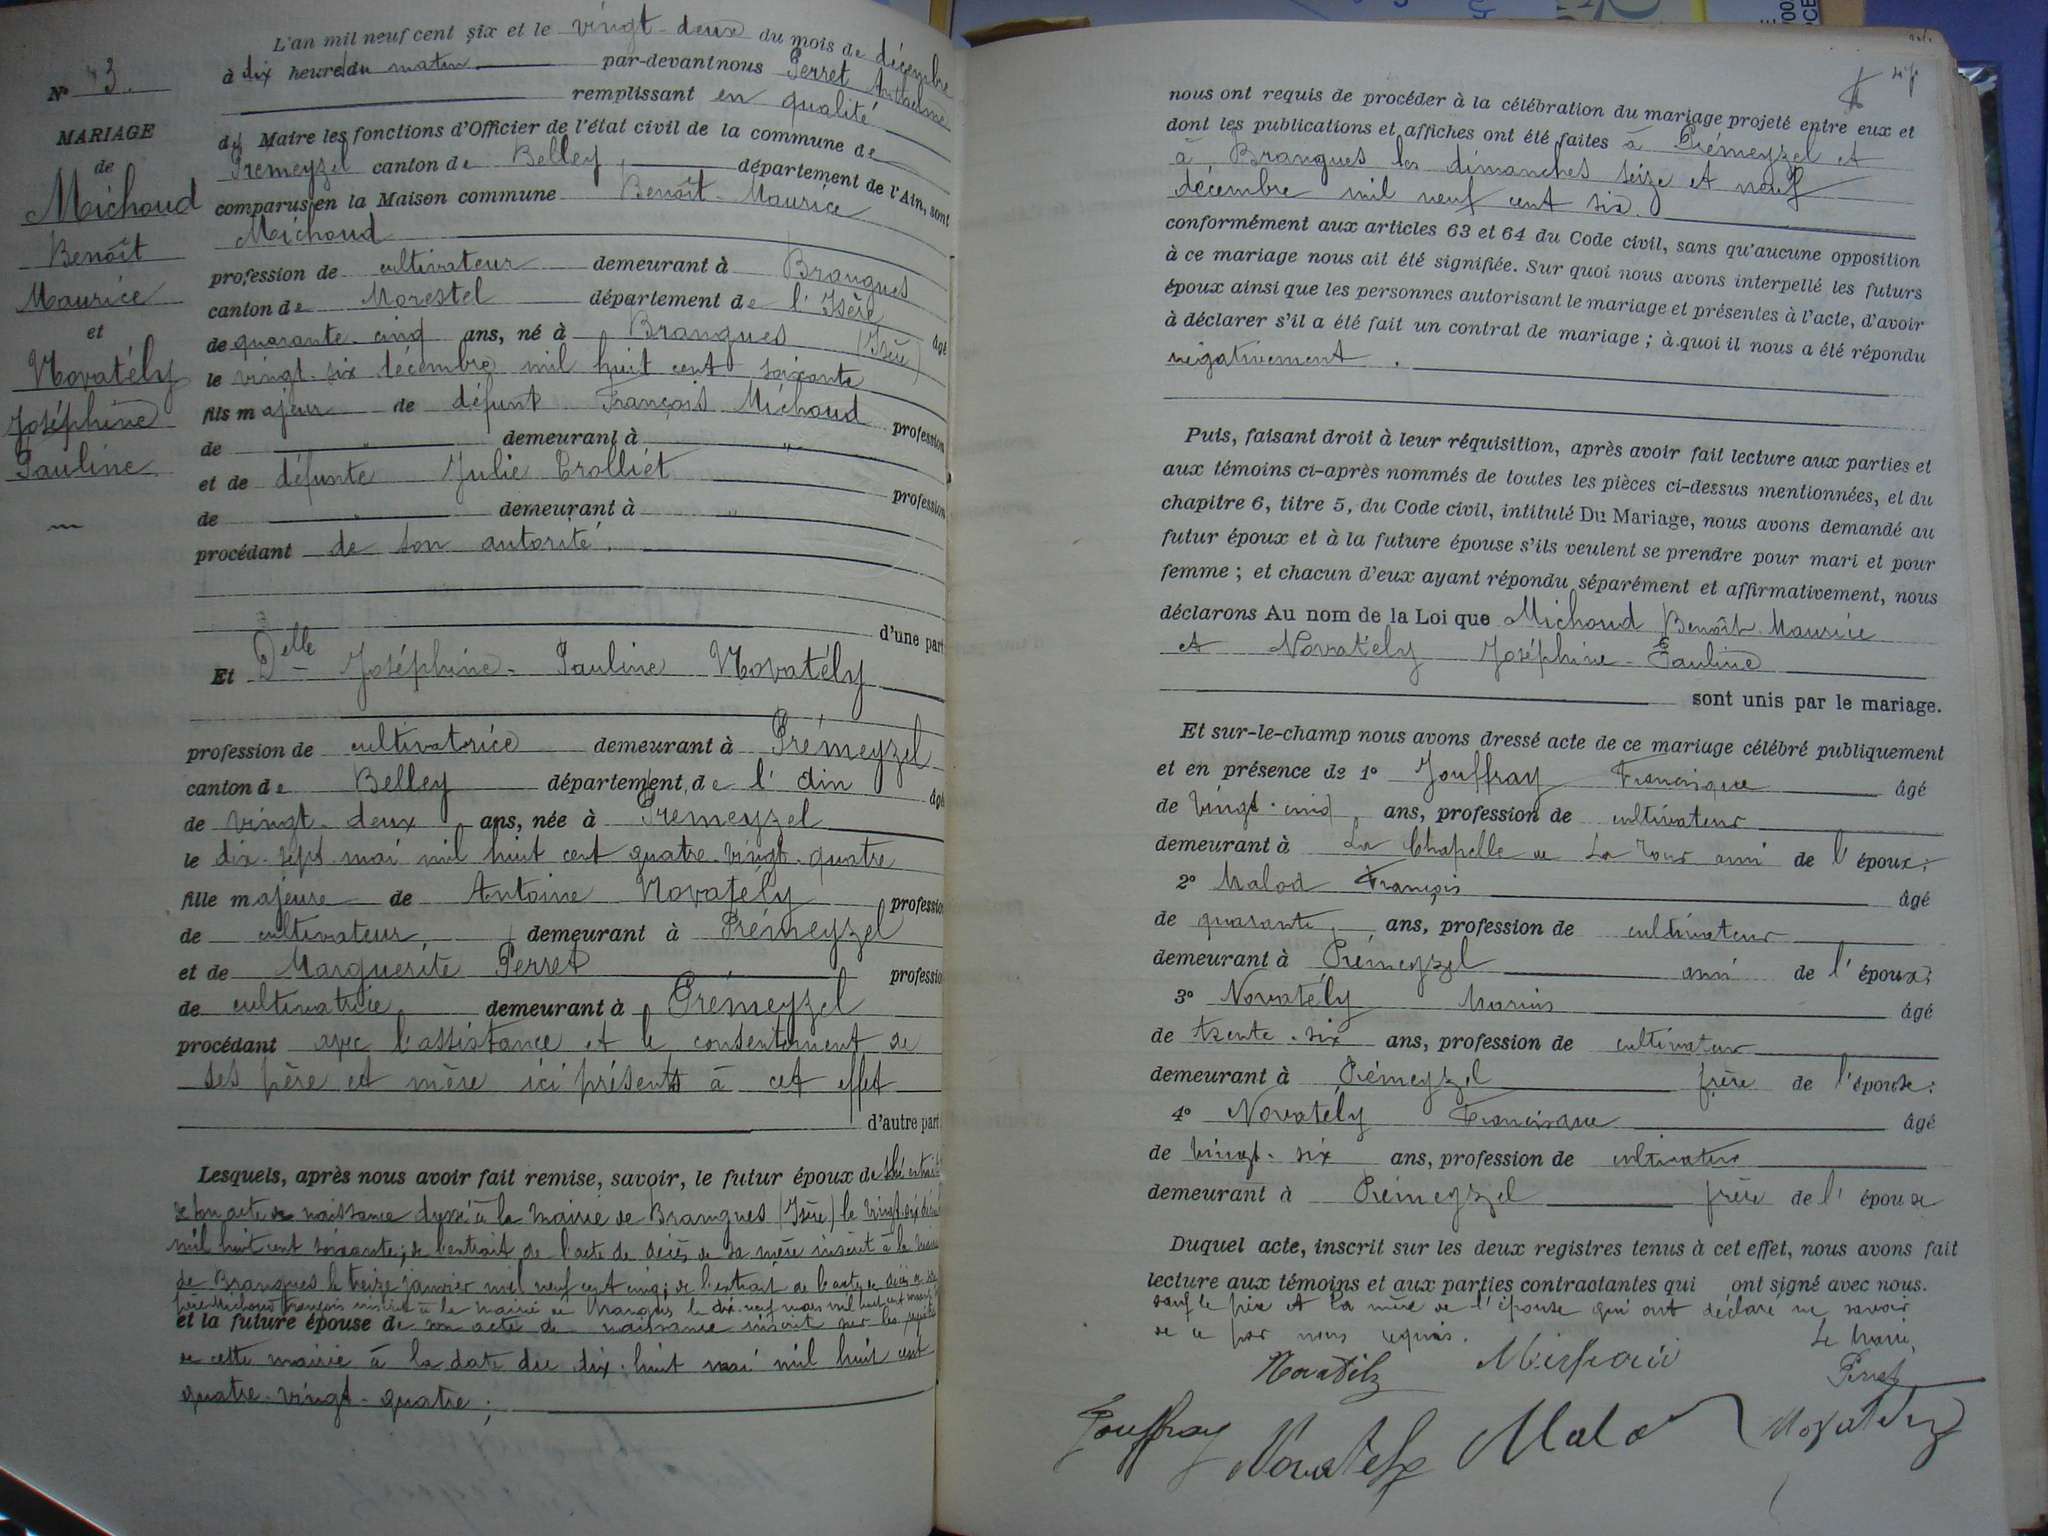 Nº 3.
MARIAGE
de
Michoud
Benoît
Maurice
et
Novatély
Joséphine
Pauline
L'an mil neuf cent six et le vingt-deux du mois de décembre
à dix heures du matin par-devant nous Perret Anthelme
remplissant en qualité
de Maire les fonctions d'Officier de l'état civil de la commune de
Prémeyzel canton de Belley, département de l'Ain, sont
comparus en la Maison commune Benoît-Maurice
Michoud
profession de cultivateur demeurant à Brangues
canton de Morestel département de l'Isère âgé
de quarante-cinq ans, né à Brangues (Isère)
le vingt-six décembre mil huit cent soixante
fils majeur de défunt François Michoud profession
de " demeurant à "
et de défunte Julie Trolliet profession
de " demeurant à "
procédant de son autorité.
d'une part
Et Delle Joséphine-Pauline Novatély
profession de cultivatrice demeurant à Prémeyzel
canton de Belley département de l'Ain âgé
de vingt-deux ans, née à Prémeyzel
le dix-sept mai mil huit cent quatre-vingt-quatre
fille majeure de Antoine Novatély profession
de cultivateur, demeurant à Prémeyzel
et de Marguerite Perret profession
de cultivatrice demeurant à Prémeyzel
procédant avec l'assistance et le consentement de
ses père et mère ici présents à cet effet
d'autre part
Lesquels, après nous avoir fait remise, savoir, le futur époux de
de son acte de naissance dressé à la mairie de Brangues (Isère) le vingt-six
mil huit cent soixante; de l'extrait de l'acte de décès de sa mère inscrit à la mairie
de Brangues le treize janvier mil neuf cent cinq; de l'extrait de l'acte de décès de
père Michoud François inscrit à la mairie de Brangues le dix-neuf mars mil huit cent
et la future épouse de son acte de naissance inscrit sur les
de cette mairie à la date du dix-huit mai mil huit cent
quatre-vingt-quatre;
nous ont requis de procéder à la célébration du mariage projeté entre eux et
dont les publications et affiches ont été faites à Prémeyzel et
à Brangues les dimanches seize et neuf
décembre mil neuf cent six.
conformément aux articles 63 et 64 du Code civil, sans qu'aucune opposition
à ce mariage nous ait été signifiée. Sur quoi nous avons interpellé les futurs
époux ainsi que les personnes autorisant le mariage et présentes à l'acte, d'avoir
à déclarer s'il a été fait un contrat de mariage; à quoi il nous a été répondu
négativement.
Puis, faisant droit à leur réquisition, après avoir fait lecture aux parties et
aux témoins ci-après nommés de toutes les pièces ci-dessus mentionnées, et du
chapitre 6, titre 5, du Code civil, intitulé Du Mariage, nous avons demandé au
futur époux et à la future épouse s'ils veulent se prendre pour mari et pour
femme; et chacun d'eux ayant répondu séparément et affirmativement, nous
déclarons Au nom de la Loi que Michoud Benoît-Maurice
et Novatély Joséphine-Pauline
sont unis par le mariage.
Et sur-le-champ nous avons dressé acte de ce mariage célébré publiquement
et en présence de 1º Jouffray Francisque âgé
de vingt-cinq ans, profession de cultivateur
demeurant à La Chapelle de La Tour ami de l'époux;
2º Malod François âgé
de quarante ans, profession de cultivateur
demeurant à Prémeyzel ami de l'époux;
3º Novatély Marius âgé
de trente-six ans, profession de cultivateur
demeurant à Prémeyzel frère de l'épouse;
4º Novatély Francisque âgé
de vingt-six ans, profession de cultivateur
demeurant à Prémeyzel frère de l'épouse
Duquel acte, inscrit sur les deux registres tenus à cet effet, nous avons fait
lecture aux témoins et aux parties contractantes qui ont signé avec nous.
sauf le père et la mère de l'épouse qui ont déclaré ne savoir
de ce par nous requis. Le Maire,
Novatély Michoud Perret
Jouffray Novatély Malod Novatély